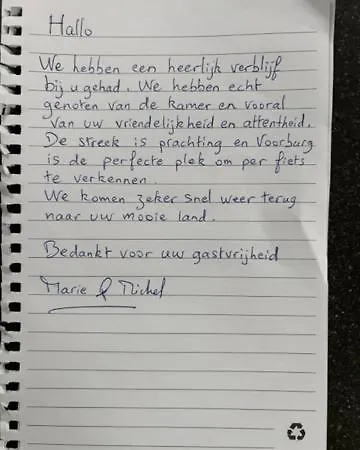 Hallo
We hebben een heerlijk verblijf
bij u gehad. We hebben echt
genoten van de kamer en vooral
van uw vriendelijkheid en attentheid.
De streek is prachting en Voorburg
is de perfecte plek om per fiets
te verkennen.
We komen zeker snel weer terug
naar uw mooie land.
Bedankt voor uw gastvrijheid
Marie & Michel